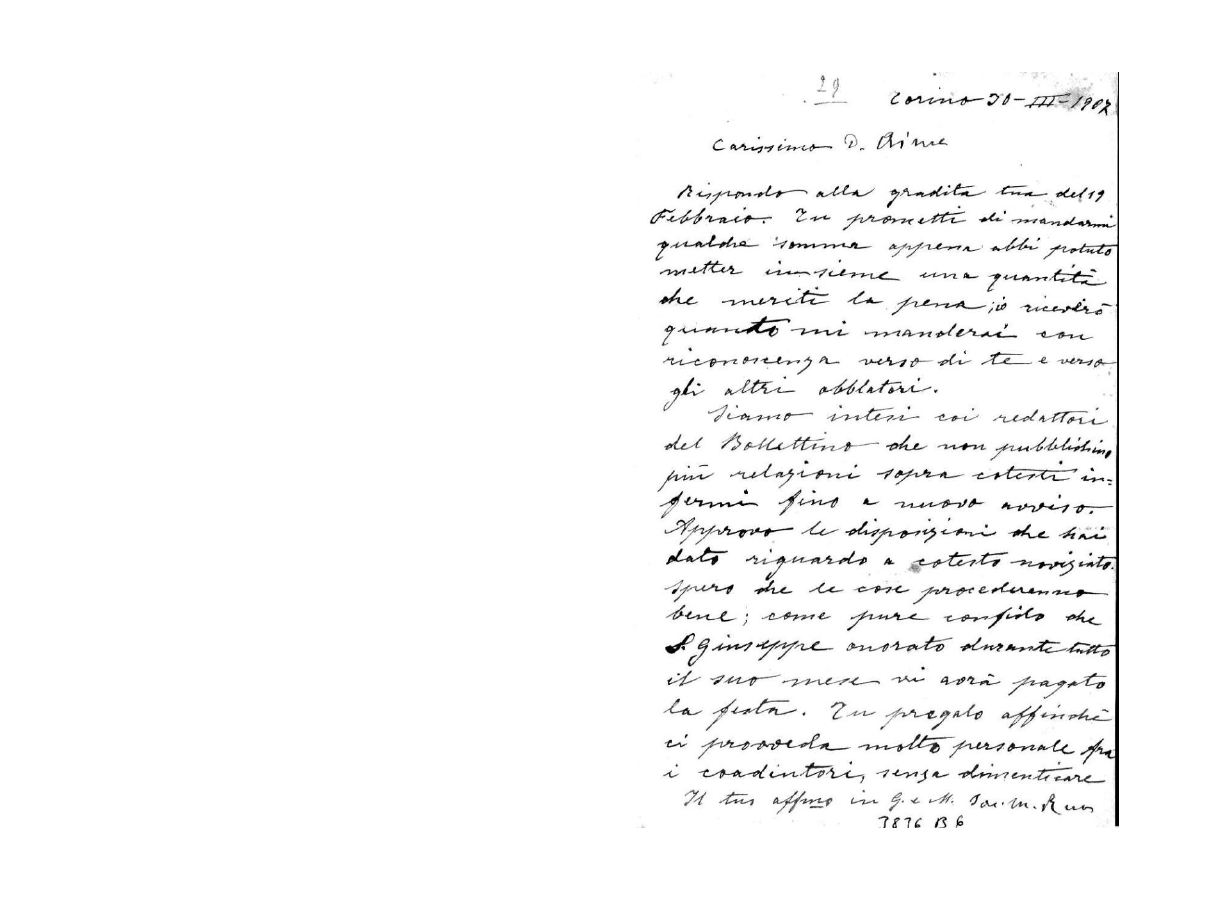 29
Torino 30-III-1907
Carissimo D.
Rispondo alla gradita tua del 19
Febbraio. Tu prometti di mandarmi
qualche somma appena abbi potuto
metter insieme una quantità
che meriti la pena; io riceverò
quanto mi manderai con
riconoscenza verso di te e verso
gli altri obblatori.
Siamo intesi coi redattori
del Bollettino che non pubblichino
più relazioni sopra cotesti in=
fermi fino a nuovo avviso.
Approvo le disposizioni che hai
dato riguardo a cotesto noviziato.
Spero che le cose procederanno
bene; come pure confido che
S. Giuseppe onorato durante tutto
il suo mese vi avrà pagato
la festa. Tu pregalo affinchè
ci provveda molto personale fra
i coadiutori, senza dimenticare
Il tuo affmo in G. e M. Sac. M. Rua
3876 B6